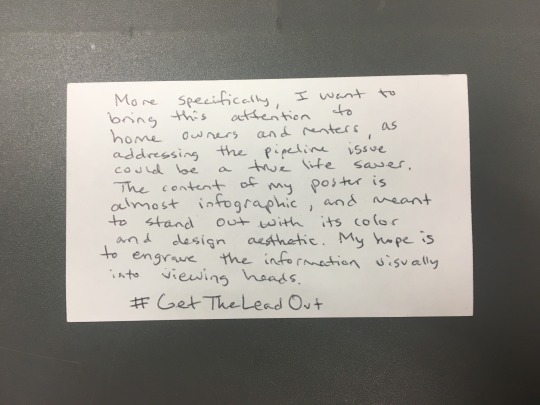 More specifically, I want to
bring this attention to
home owners and renters, as
addressing the pipeline issue
could be a true life saver.
The content of my poster is
almost infographic, and meant
to stand out with its color
and design aesthetic. My hope is
to engrave the information visually
into viewing heads.
# GetTheLeadOut